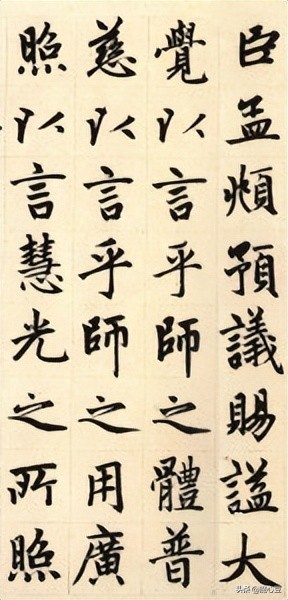 臣孟頫預議賜謚大
覺以言乎師之體普
慈以言乎師之用廣
照以言慧光之所照
头条